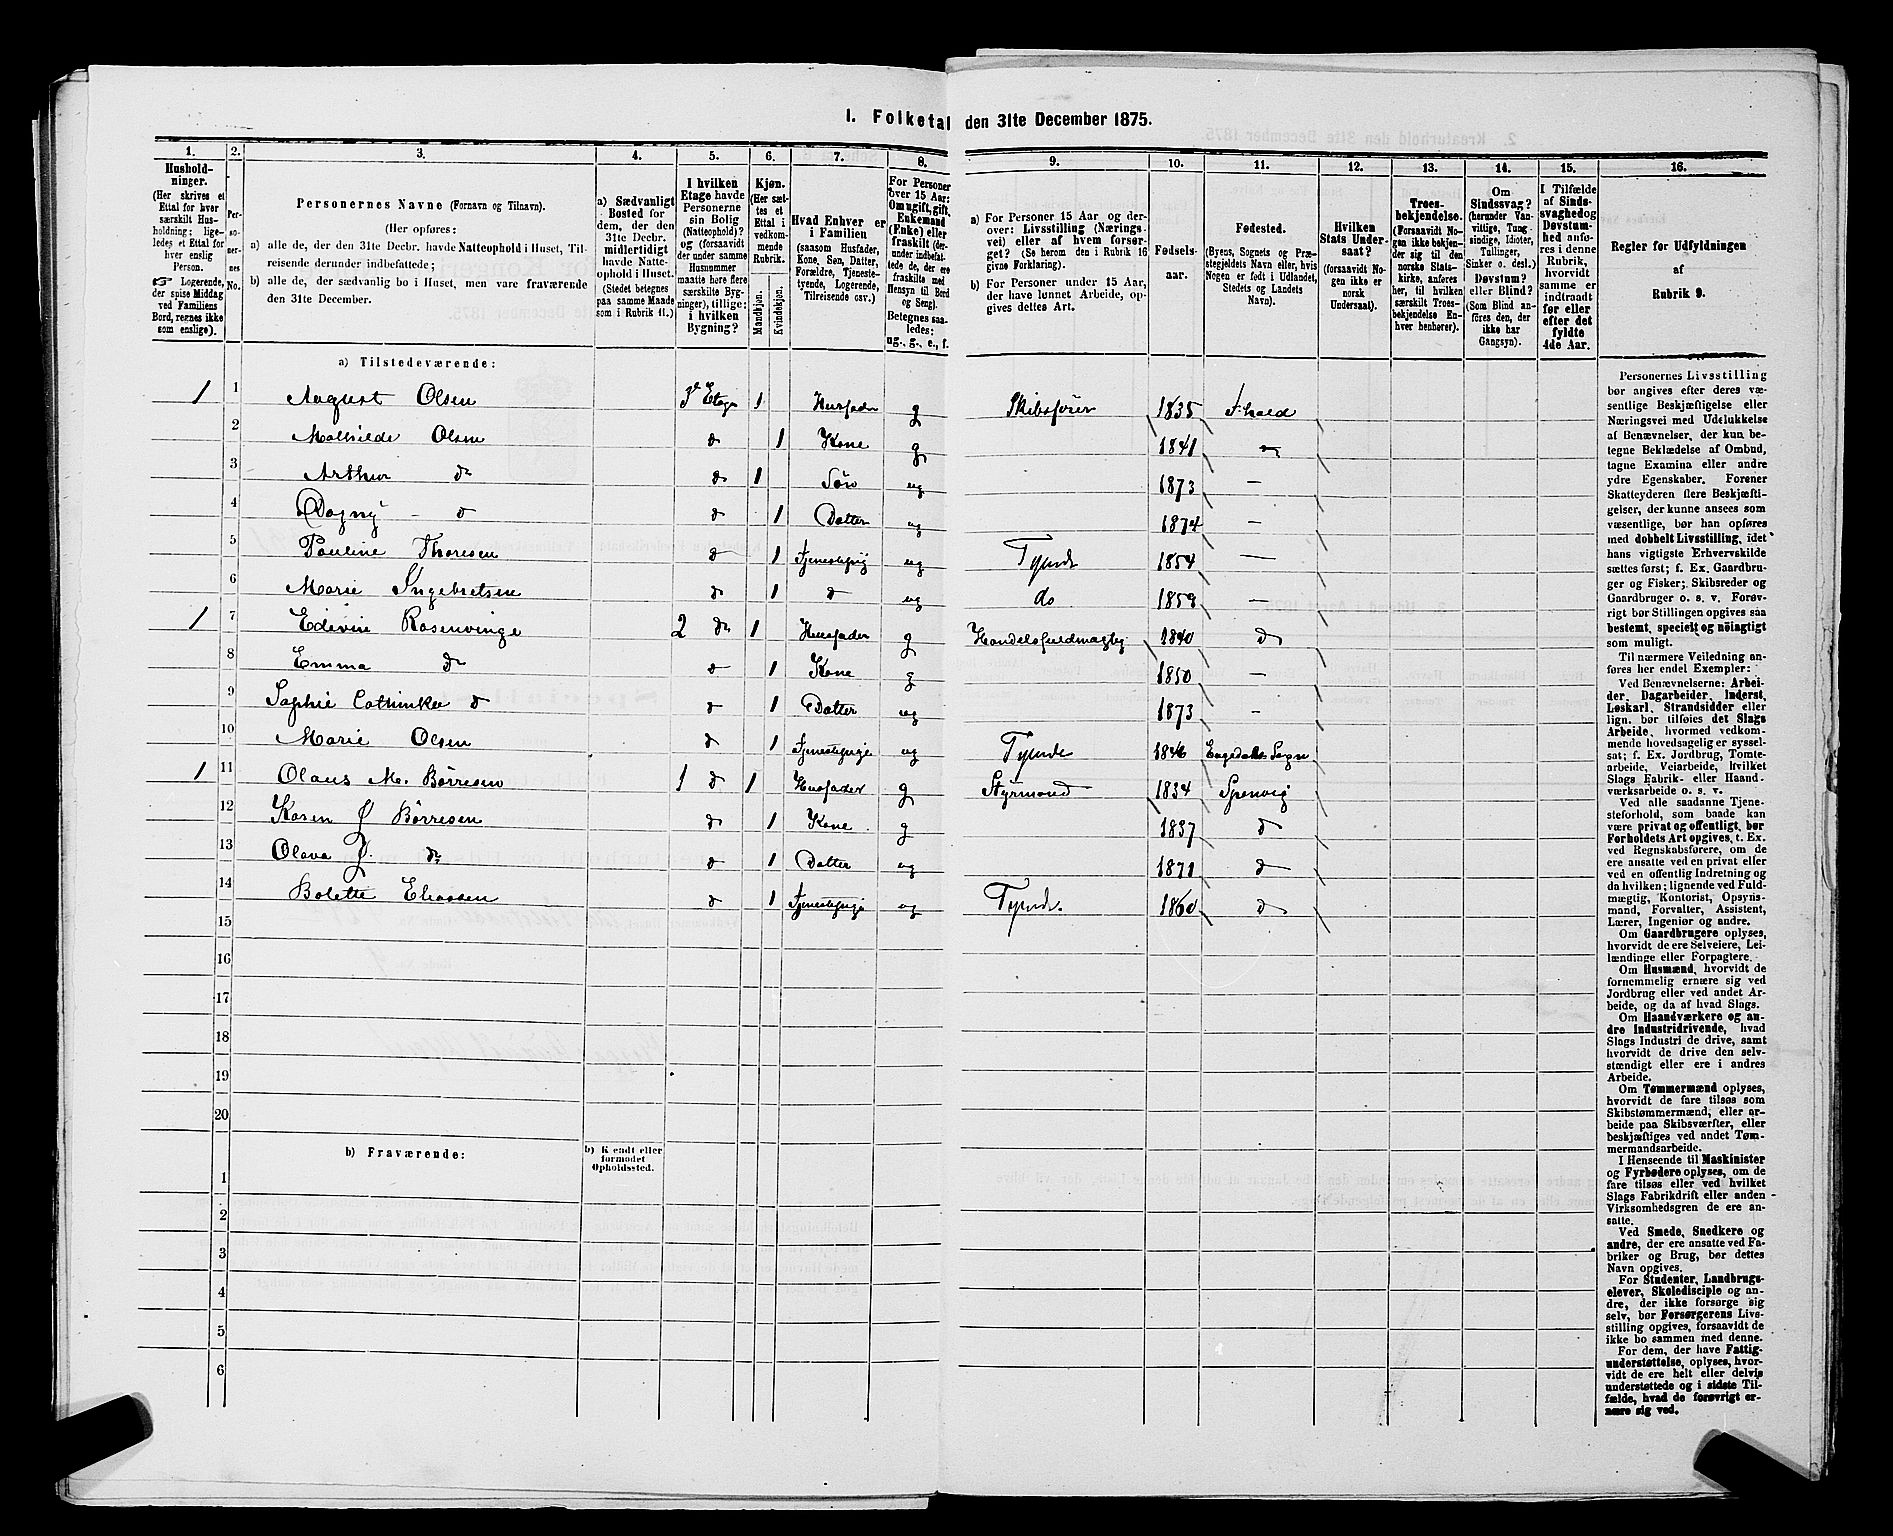 I. Folketal den 31te December 1875.
1. 2. 3. 4. 5. 6. 7. 8. 9. 10. 11. 12. 13. 14. 15. 16.
Husholdninger.
(Her skrives et
Ettal for hver
særskilt Hus-
holdning; lige-
ledes et Ettal for
hver enslig
Person.
☞ Logerende,
der spise Middag
ved Familiens
Bord, regnes ikke
som enslige).
Personernes No.
Personernes Navne (Fornavn og Tilnavn).
(Her opføres:
a) alle de, der den 31te Decbr. havde Natteophold i Huset, Til-
reisende derunder indbefattede;
b) alle de, der sædvanlig bo i Huset, men vare fraværende
den 31te December.
a) Sædvanligt
Bosted for
dem, der den
31te Decbr.
midlertidigt
havde Natte-
ophold i Huset.
(Stedet betegnes
paa samme Maade
som i Rubrik 11.)
I hvilken
Etage havde
Personerne
sin Bolig
(Natteophold)?
og (forsaavidt
der under samme
Husnummer
maatte høre flere
særskilte Byg-
ninger), tillige:
i hvilken
Bygning?
Kjøn.
(Her sæt-
tes et
Ettal i
vedkom-
mende
Rubrik.
Mandkjøn.
Kvindekjøn.
Hvad Enhver er
i Familien
(saasom Husfader,
Kone, Søn, Datter,
Forældre, Tjeneste-
tyende, Logerende,
Tilreisende osv.)
For Personer
over 15 Aar:
Om ugift, gift,
Enkemand
(Enke) eller
fraskilt (der-
under indbefat-
tede de, der ere
fraskilte med
Hensyn til Bord
og Seng).
Betegnes saa-
ledes:
ug., g., e., f.
a) For Personer 15 Aar og der-
over: Livsstilling (Nærings-
vei) eller af hvem forsør-
get? (Se herom den i Rubrik 16
givne Forklaring).
b) For Personer under 15 Aar,
der have lønnet Arbeide, op-
gives dettes Art.
Fødsels-
aar.
Fødested.
(Byens, Sognets og Præ-
stegjeldets Navn eller, hvis
Nogen er født i Udlandet,
Stedets og Landets
Navn).
Hvilken
Stats Under-
saat?
(forsaavidt No-
gen ikke er
norsk
Undersaat).
Troes-
bekjendelse.
(Forsaavidt No-
gen ikke bekjen-
der sig til den
norske Stats-
kirke, anføres
her, til hvilken
særskilt Troes-
bekjendelse En-
hver henhører).
Om
Sindssvag?
(herunder Van-
vittige, Tung-
sindige, Idioter,
Tullinger,
Sinker o. desl.)
Døvstum?
eller Blind?
(Som Blind an-
føres den, der
ikke har
Gangsyn).
I Tilfælde
af Sinds-
svaghed og
Døvstum-
hed anfø-
res i denne
Rubrik,
hvorvidt
samme er
indtraadt
før eller
efter det
fyldte
4de Aar.
Regler for Udfyldningen
af
Rubrik 9.
a) Tilstedeværende:
1 1 August Olsen 3d Etage 1 Husfader g Skibsfører 1835 F.hald
2 Mathilde Olsen d 1 Kone g 1841 d
3 Arthur d d 1 Søn ug 1873 —
4 Dagny d d 1 Datter ug 1874 —
5 Pauline Thoresen d 1 Tjenestepige ug Tyende 1854 —
6 Marie Ingebretsen d 1 d ug do 1859 —
1 7 Edevin Rosenvinge 2 d 1 Husfader g Handelsfuldmægtig 1840 d
8 Emma d d 1 Kone g 1850 —
9 Sophie Cathinka d d 1 Datter ug 1873 —
10 Marie Olsen d 1 Tjenestepige ug Tyende 1846 Sogn
1 11 Olaus M. Børresen 1 d 1 Husfader g Styrmand 1834 Spervig
12 Karen J Børresen d 1 Kone g 1837 d
13 Olava J. d d 1 Datter ug 1871 d
14 Bolette Eliassen d 1 Tjenestepige ug Tyende. 1860 d
15
16
17
18
19
20
b) Fraværende:
b) Kjendt eller
formodet
Opholdssted.
1
2
3
4
5
6
Personernes Livsstilling
bør angives efter deres væ-
sentlige Beskjæftigelse eller
Næringsvei med Udelukkelse
af Benævnelser, der kun be-
tegne Beklædelse af Ombud,
tagne Examina eller andre
ydre Egenskaber. Forener
Skatteyderen flere Beskjæfti-
gelser, der kunne ansees som
væsentlige, bør han opføres
med dobbelt Livsstilling, idet
hans vigtigste Erhvervskilde
sættes først; f. Ex. Gaardbru-
ger og Fisker; Skibsreder og
Gaardbruger o. s. v. Forøv-
rigt bør Stillingen opgives saa
bestemt, specielt og nöiagtigt
som muligt.
Til nærmere Veiledning an-
føres her endel Exempler:
Ved Benævnelserne: Arbei-
der, Dagarbeider, Inderst,
Løskarl, Strandsidder eller
lign. bør tilføies det Slags
Arbeide, hvormed vedkom-
mende hovedsagelig er syssel-
sat; f. Ex. Jordbrug, Tomte-
arbeide, Veiarbeide, Hvilket
Slags Fabrik- eller Haand-
værksarbeide o. s. v.
Ved alle saadanne Tjene-
steforhold, som baade kan
være privat og offentligt, bør
Forholdets Art opgives, t. Ex.
ved Regnskabsførere, om de
ere ansatte ved en privat eller
ved en offentlig Indretning og
da hvilken; lignende ved Fuld-
mægtig, Kontorist, Opsyns-
mand, Forvalter, Assistent,
Lærer, Ingeniør og andre.
Om Gaardbrugere oplyses,
hvorvidt de ere Selveiere, Lei-
lændinge eller Forpagtere.
Om Husmænd, hvorvidt de
fornemmelig ernære sig ved
Jordbrug eller ved andet Ar-
beide, og da af hvad Slags.
Om Haandværkere og an-
dre Industridrivende, hvad
Slags Industri de drive, samt
hvorvidt de drive den selv-
stændigt eller ere i andres
Arbeide.
Om Tømmermænd oplyses,
hvorvidt de fare tilsøs som
Skibstømmermænd, eller ar-
beide paa Skibsværfter, eller
beskjæftiges ved andet Tøm-
mermandsarbeide.
I Henseende til Maskinister
og Fyrbødere oplyses, om de
fare tilsøs eller ved hvilket
Slags Fabrikdrift eller anden
Virksomhedsgren de ere an-
satte.
Ved Smede, Snedkere og
andre, der ere ansatte ved Fa-
briker og Brug, bør dettes
Navn opgives.
For Studenter, Landbrugs-
elever, Skoledisciple og an-
dre, der ikke forsørge sig
selv, bør Forsørgerens Livs-
stilling opgives, forsaavidt de
ikke bo sammen med denne.
For dem, der have Fattig-
understøttelse, oplyses, hvor-
vidt de ere helt eller delvis
understøttede og i sidste Til-
fælde, hvad de forøvrigt er-
nære sig ved.